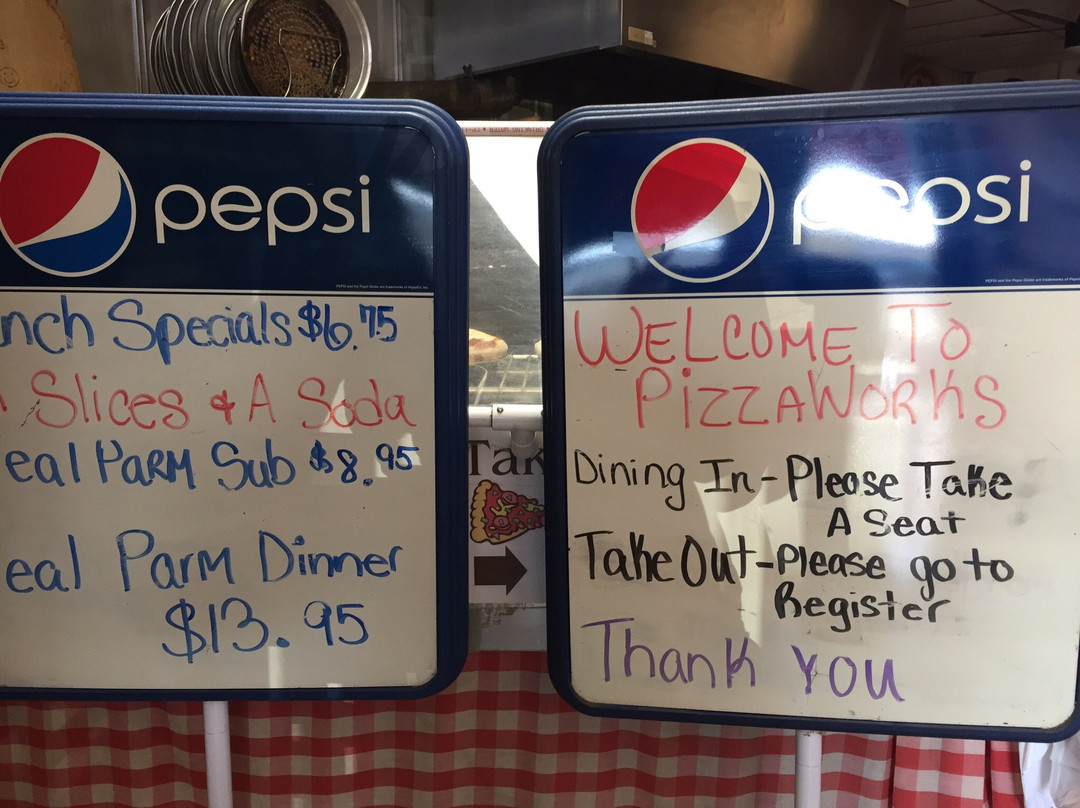 pepsi
nch Specials $6.75
Slices & A Soda
eal Parm Sub $8.95
eal Parm Dinner
$13.95
Tak
pepsi
WELCOME TO
PIZZAWORKS
Dining In - Please Take
A Seat
Take Out - Please go to
Register
Thank You